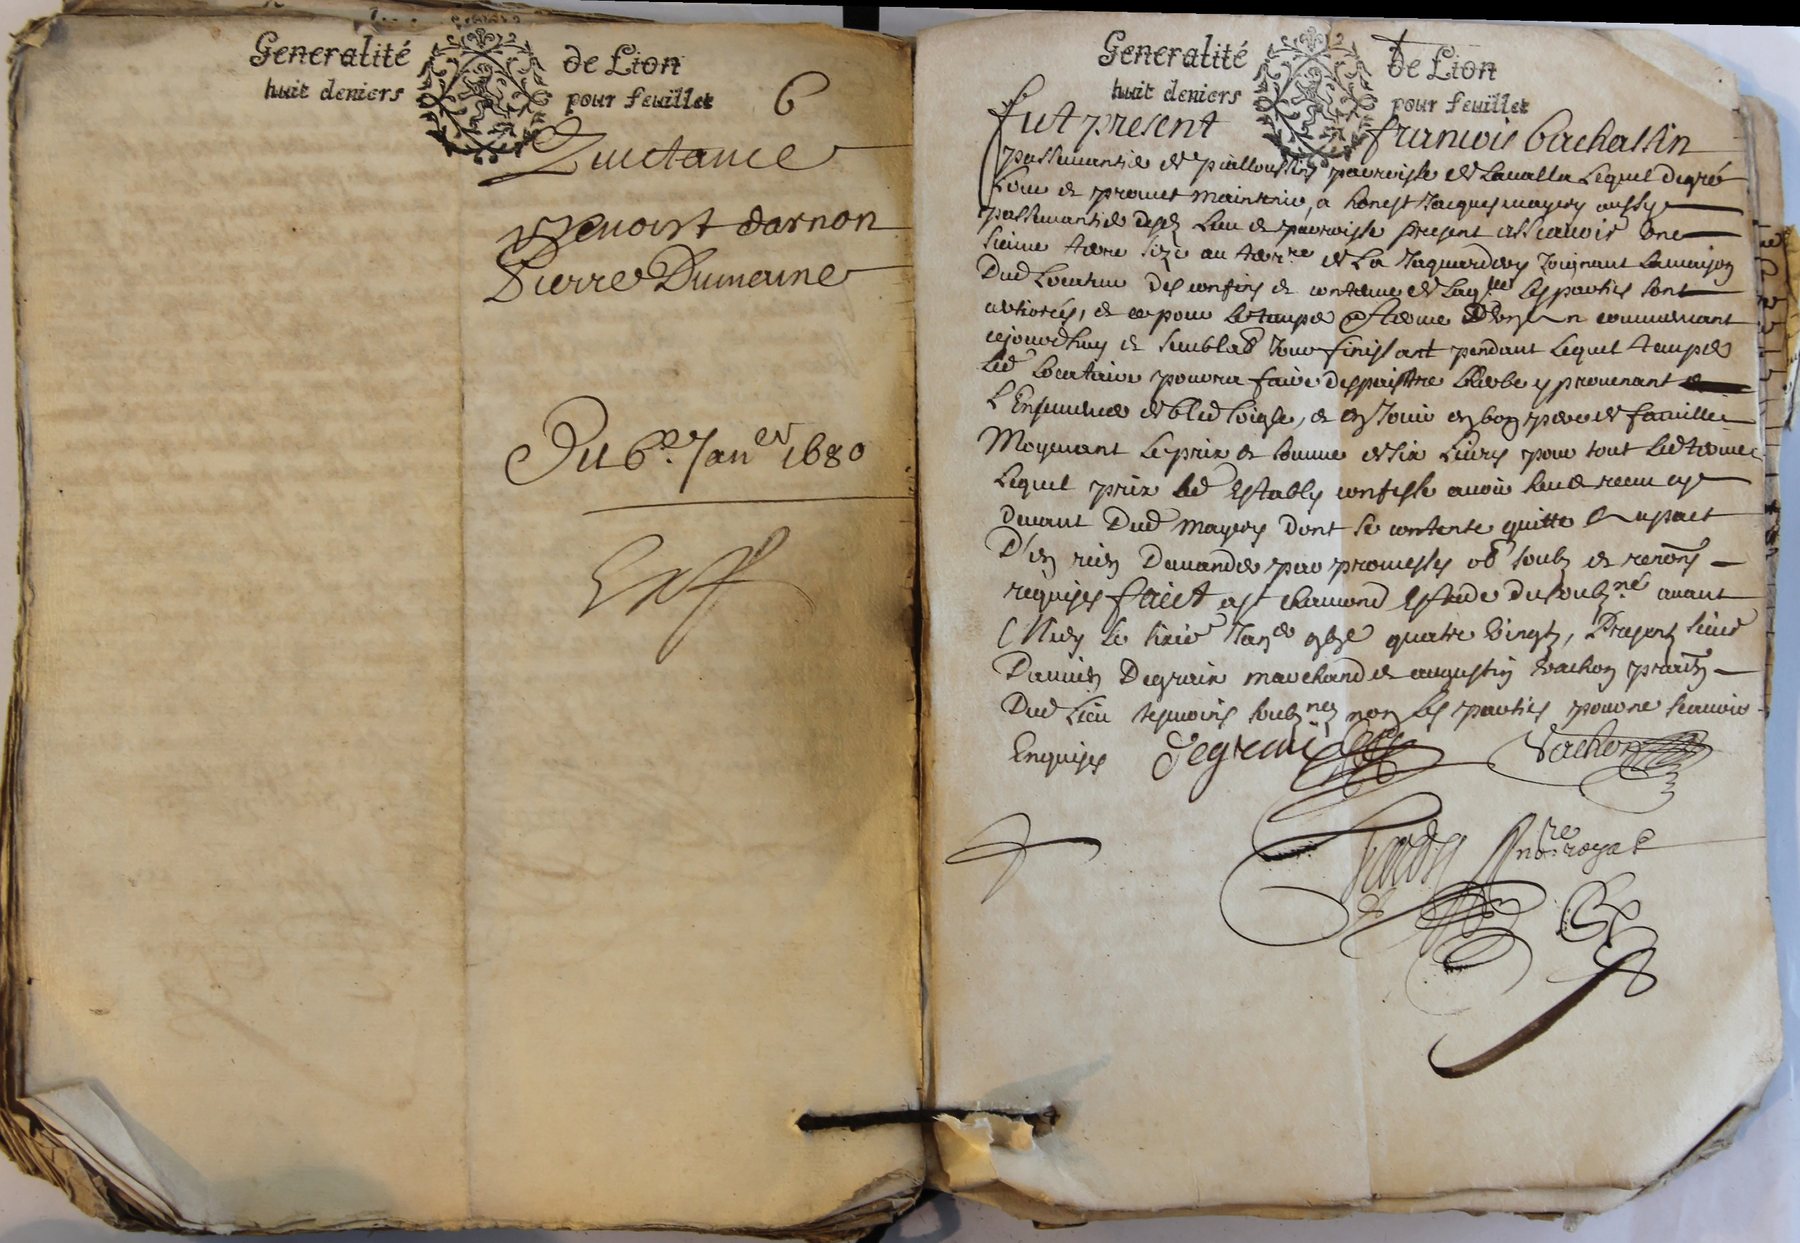 Generalité de Lion
huit deniers pour feuillet
6
Quictance
Benoist darnon
Pierre Dumaine
Du 6e. Janer 1680
Exp
Generalité de Lion
huit deniers pour feuillet
fut present francois bachassin
passemantier de paroisse de Lavalla Lequel de gré
Loue et promet maintenir, a honest Jacques mayery aussy
passemantier desd Lieu et parroisse present asscavoir une
sienne terre size au terre de La Jaquerdery Joignant La maison
Dud Locataire Des confins et contenue de Laqlle Les parties sont
et ce pour Le temps et terme D'un an commencant
cejourdhuy et semblable Jour finissant pendant Lequel temps
Led Locataire pourra faire despaistre Lherbe y provenant
L'Ensemencer de bled seigle, et en Jouir en bon pere de famille
Moyenant Le prix et somme de six Livres pour tout Led terme
Lequel prix Led Estably confesse avoir heu et receu cy
devant Dud mayery Dont se contente quitte avec pact
D'en rien Demander par promesses ob soubz et renons
requises faict a st chamond Estude du soubzné avant
Midy Le sixie Janer quatre vingtz, Presentz sieur
Damien Degrain marchand et augustin vachon pratn
Dud Lieu tesmoins soubznez non Les parties pour ne scavoir
Enquises Degrain Vachon
nore royal